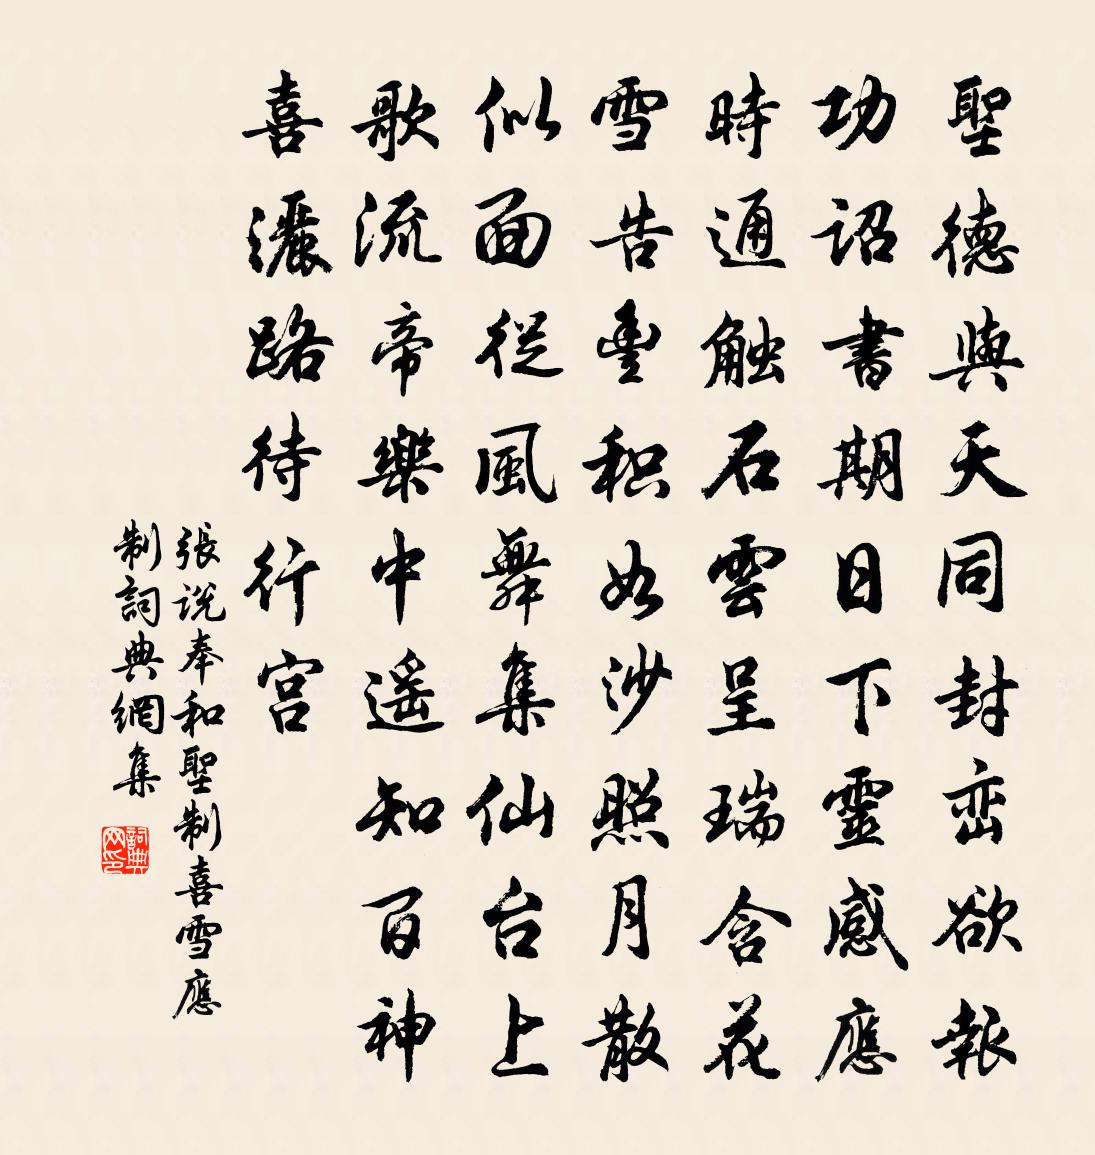 聖德與天同封巒欲報
功詔書期日下靈感應
時通触石雲呈瑞含花
雪告豐积如沙照月散
似面從風舞集仙台上
歌流帝樂中遥知百神
喜灑路待行宮
張説奉和聖制喜雪應
制詞典網集
詞典网印